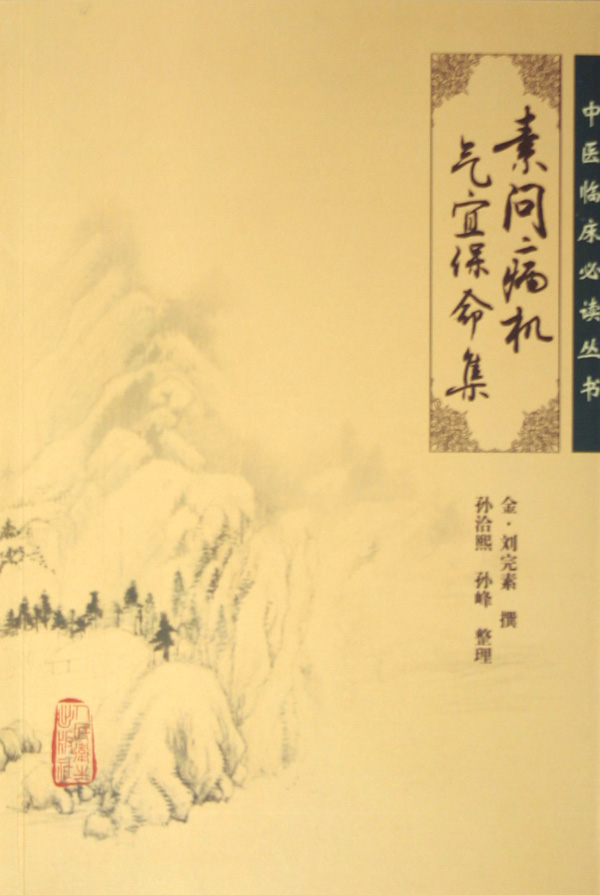 中医临床必读丛书
素问病机
气宜保命集
金·刘完素 撰
孙洽熙 孙峰 整理
人民卫生出版社